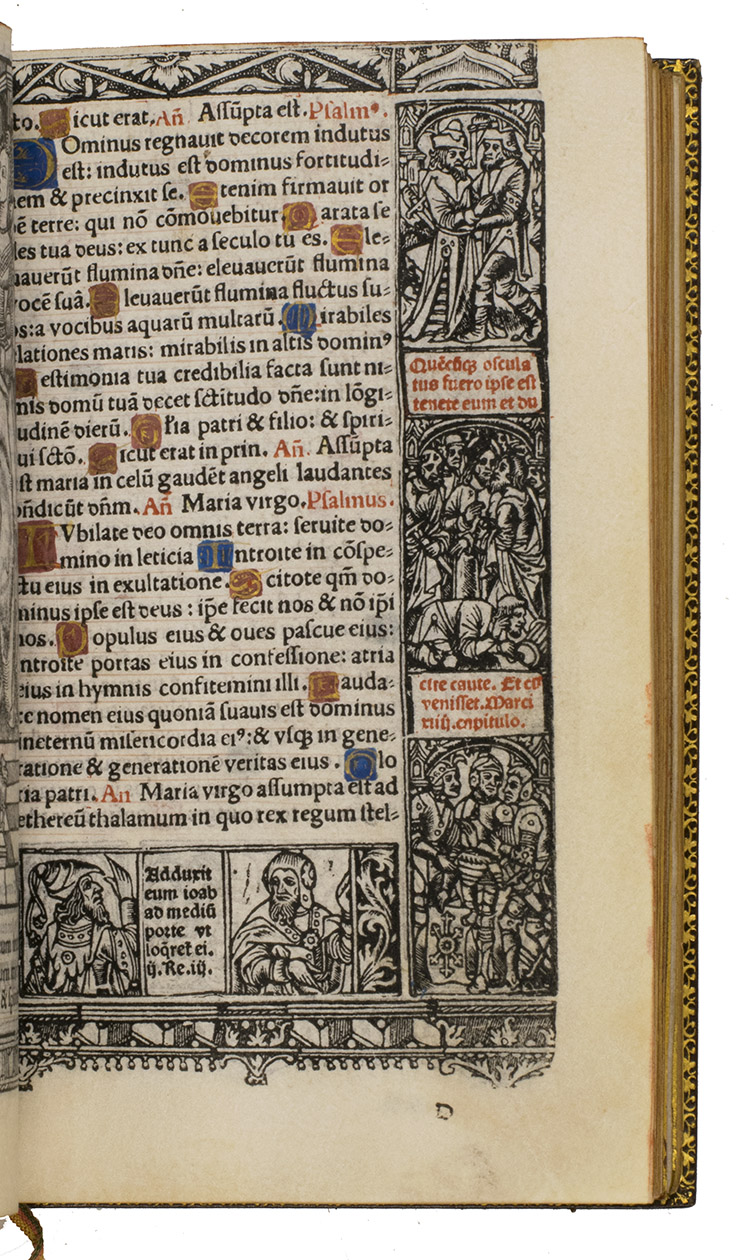 to. Sicut erat. Añ. Assũpta est. Psalm⁹.
DOminus regnauit decorem indutus
est: indutus est dominus fortitudi-
nem & precinxit se. Etenim firmauit or
bẽ terre: qui nõ cõmouebitur. Parata se
des tua deus: ex tunc a seculo tu es. Ele-
uauerũt flumina dñe: eleuauerũt flumina
vocẽ suã. Eleuauerũt flumina fluctus su-
os: a vocibus aquarũ multarũ. Mirabiles
elationes maris: mirabilis in altis domin⁹
Testimonia tua credibilia facta sunt ni-
mis domũ tuã decet sctĩtudo dñe: in lõgi-
tudinẽ dierũ. Glia patri & filio: & spiri-
tui sctõ. Sicut erat in prin. Añ. Assũpta
est maria in celũ gaudẽt angeli laudantes
bñdicũt dñm. Añ Maria virgo. Psalmus.
IVbilate deo omnis terra: seruite do-
mino in leticia Introite in cõspe-
ctu eius in exultatione. Scitote qm̃ do-
minus ipse est deus: ip̃e fecit nos & nõ ip̃i
nos. Populus eius & oues pascue eius:
introite portas eius in confessione: atria
eius in hymnis confitemini illi. Lauda-
te nomen eius quoniã suauis est dominus
ineternũ misericordia ei⁹: & vsq̃ in gene-
ratione & generationẽ veritas eius. Glo
ria patri. Añ Maria virgo assumpta est ad
ethereũ thalamum in quo rex regum stel-
Quẽcũq̃ oscula
tus fuero ipse est
tenete eum et du
cite caute. Et cũ
venisset. Marci
xiiij. capitulo.
Adduxit
eum ioab
ad mediũ
porte vt
loq̃ret̃ ei.
ij. Re. iij.
D